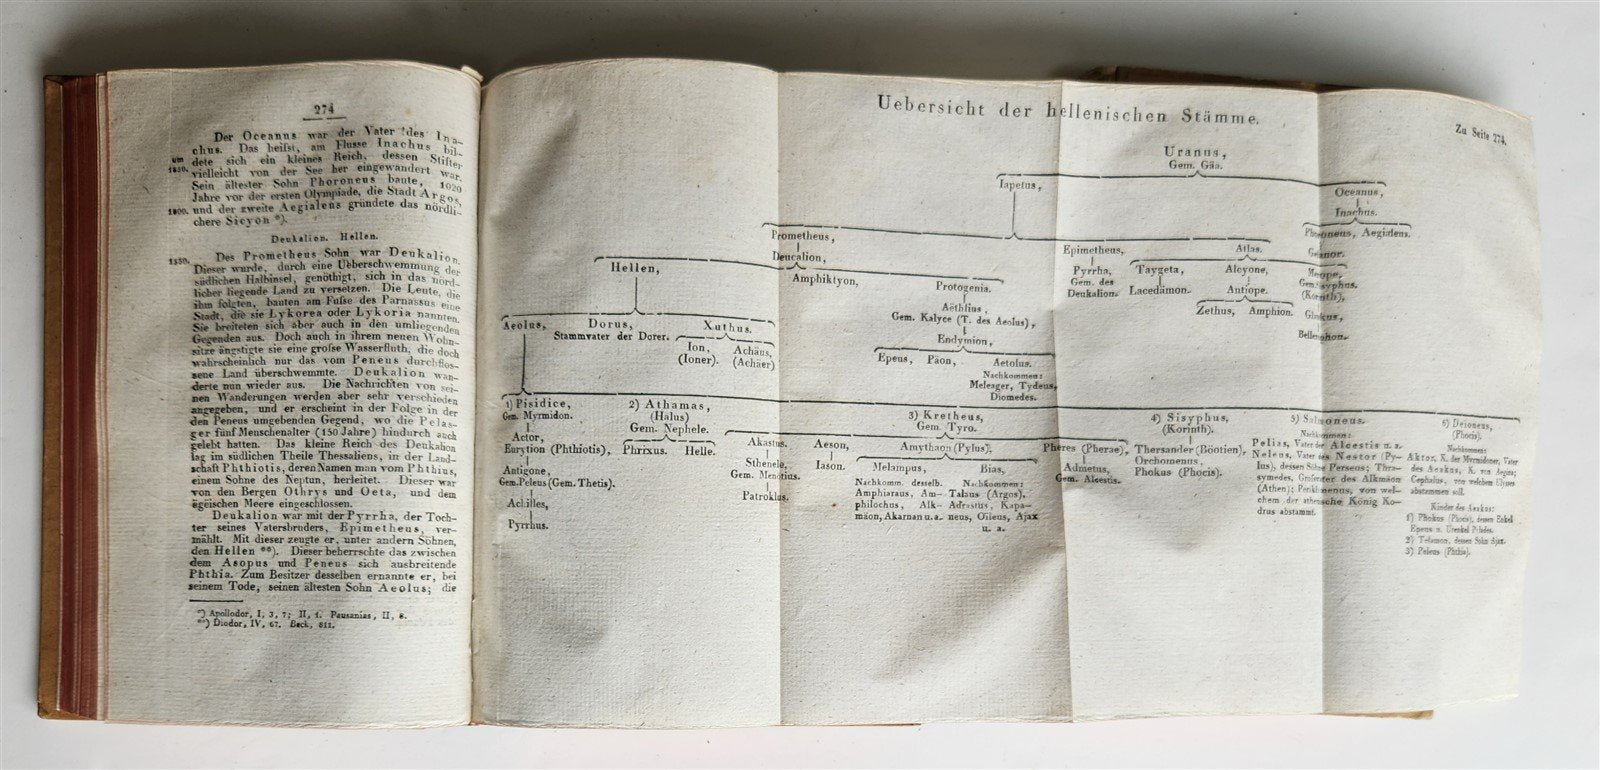 274
Der Oceanus war der Vater des Ina-
chus. Das heifst, am Flusse Inachus bil-
um dete sich ein kleines Reich, dessen Stifter
1830. vielleicht von der See her eingewandert war.
Sein ältester Sohn Phoroneus baute, 1020
Jahre vor der ersten Olympiade, die Stadt Argos,
1800. und der zweite Aegialens gründete das nördli-
chere Sicyon *).
Deukalion. Hellen.
1550. Des Prometheus Sohn war Deukalion.
Dieser wurde, durch eine Ueberschwemmung der
südlichen Halbinsel, genöthigt, sich in das nörd-
licher liegende Land zu versetzen. Die Leute, die
ihm folgten, bauten am Fufse des Parnassus eine
Stadt, die sie Lykorea oder Lykoria nannten.
Sie breiteten sich aber auch in den umliegenden
Gegenden aus. Doch auch in ihrem neuen Wohn-
sitze ängstigte sie eine grofse Wasserfluth, die doch
wahrscheinlich nur das vom Peneus durchflos-
sene Land überschwemmte. Deukalion wan-
derte nun wieder aus. Die Nachrichten von sei-
nen Wanderungen werden aber sehr verschieden
angegeben, und er erscheint in der Folge in der
den Peneus umgebenden Gegend, wo die Pelas-
ger fünf Menschenalter (150 Jahre) hindurch auch
gelebt hatten. Das kleine Reich des Deukalion
lag im südlichen Theile Thessaliens, in der Land-
schaft Phthiotis, deren Namen man vom Phthius,
einem Sohne des Neptun, herleitet. Dieser war
von den Bergen Othrys und Oeta, und dem
egëischen Meere eingeschlossen.
Deukalion war mit der Pyrrha, der Toch-
ter seines Vatersbruders, Epimetheus, ver-
mählt. Mit dieser zeugte er, unter andern Söhnen,
den Hellen **). Dieser beherrschte das zwischen
dem Asopus und Peneus sich ausbreitende
Phthia. Zum Besitzer desselben ernannte er, bei
seinem Tode, seinen ältesten Sohn Aeolus; die
*) Apollodor, I, 3, 7; II, 1. Pausanias, II, 8.
**) Diodor, IV, 67. Beck, 811.
Uebersicht der hellenischen Stämme.
Zu Seite 274.
Uranus,
Gem. Gäa.
Iapetus, Oceanus,
Inachus.
Prometheus, Epimetheus, Atlas. Phoroneus, Aegialens.
Deucalion, Pyrrha, Taygeta, Alcyone, Merope,
Gem. des Gem. Sisyphus.
Deukalion. Lacedämon. Antiope. (Korinth),
Zethus, Amphion. Glaucus,
Bellerophon.
Hellen, Amphiktyon, Protogenia.
Aëthlius,
Gem. Kalyce (T. des Aeolus),
Endymion,
Epeus, Päon, Aetolus.
Nachkommen:
Meleager, Tydeus,
Diomedes.
Aeolus, Dorus, Xuthus.
Stammvater der Dorer. Ion, Achäus,
(Ioner). (Achäer)
1) Pisidice,
Gem. Myrmidon.
Actor,
Eurytion (Phthiotis),
Antigone,
Gem. Peleus (Gem. Thetis).
Achilles,
Pyrrhus.
2) Athamas,
(Halus)
Gem. Nephele.
Phrixus. Helle.
3) Kretheus,
Gem. Tyro.
Akastus.
Sthenele,
Gem. Menötius.
Patroklus.
Aeson,
Iason.
Amythaon (Pylus),
Melampus, Bias,
Nachkomm. desselb. Nachkommen:
Amphiaraus, Am- Talaus (Argos),
philochus, Alk- Adrastus, Kapa-
mäon, Akarnan u. a. neus, Oïleus, Ajax
u. a.
Pheres (Pherae),
Admetus,
Gem. Alcestis.
4) Sisyphus,
(Korinth).
Thersander (Böotien),
Orchomenus,
Phokus (Phocis).
5) Salmoneus.
Nachkommen:
Pelias, Vater der Alcestis u. a.
Neleus, Vater des Nestor (Py-
lus), dessen Söhne Perseus; Thra-
symedes, Grofsvater des Alkmäon
(Athen); Penkhmenus, von wel-
chem der athenische König Ko-
drus abstammt.
6) Deioneus,
(Phocis).
Nachkommen:
Aktor, K. der Myrmidoner, Vater
des Aeakus, K. von Aegina;
Cephalus, von welchem Ulysses
abstammen soll.
Kinder des Aeakus:
1) Phokus (Phocis), dessen Enkel
Epeus u. Urenkel Pylades.
2) Telamon, dessen Sohn Ajax.
3) Peleus (Phthia).